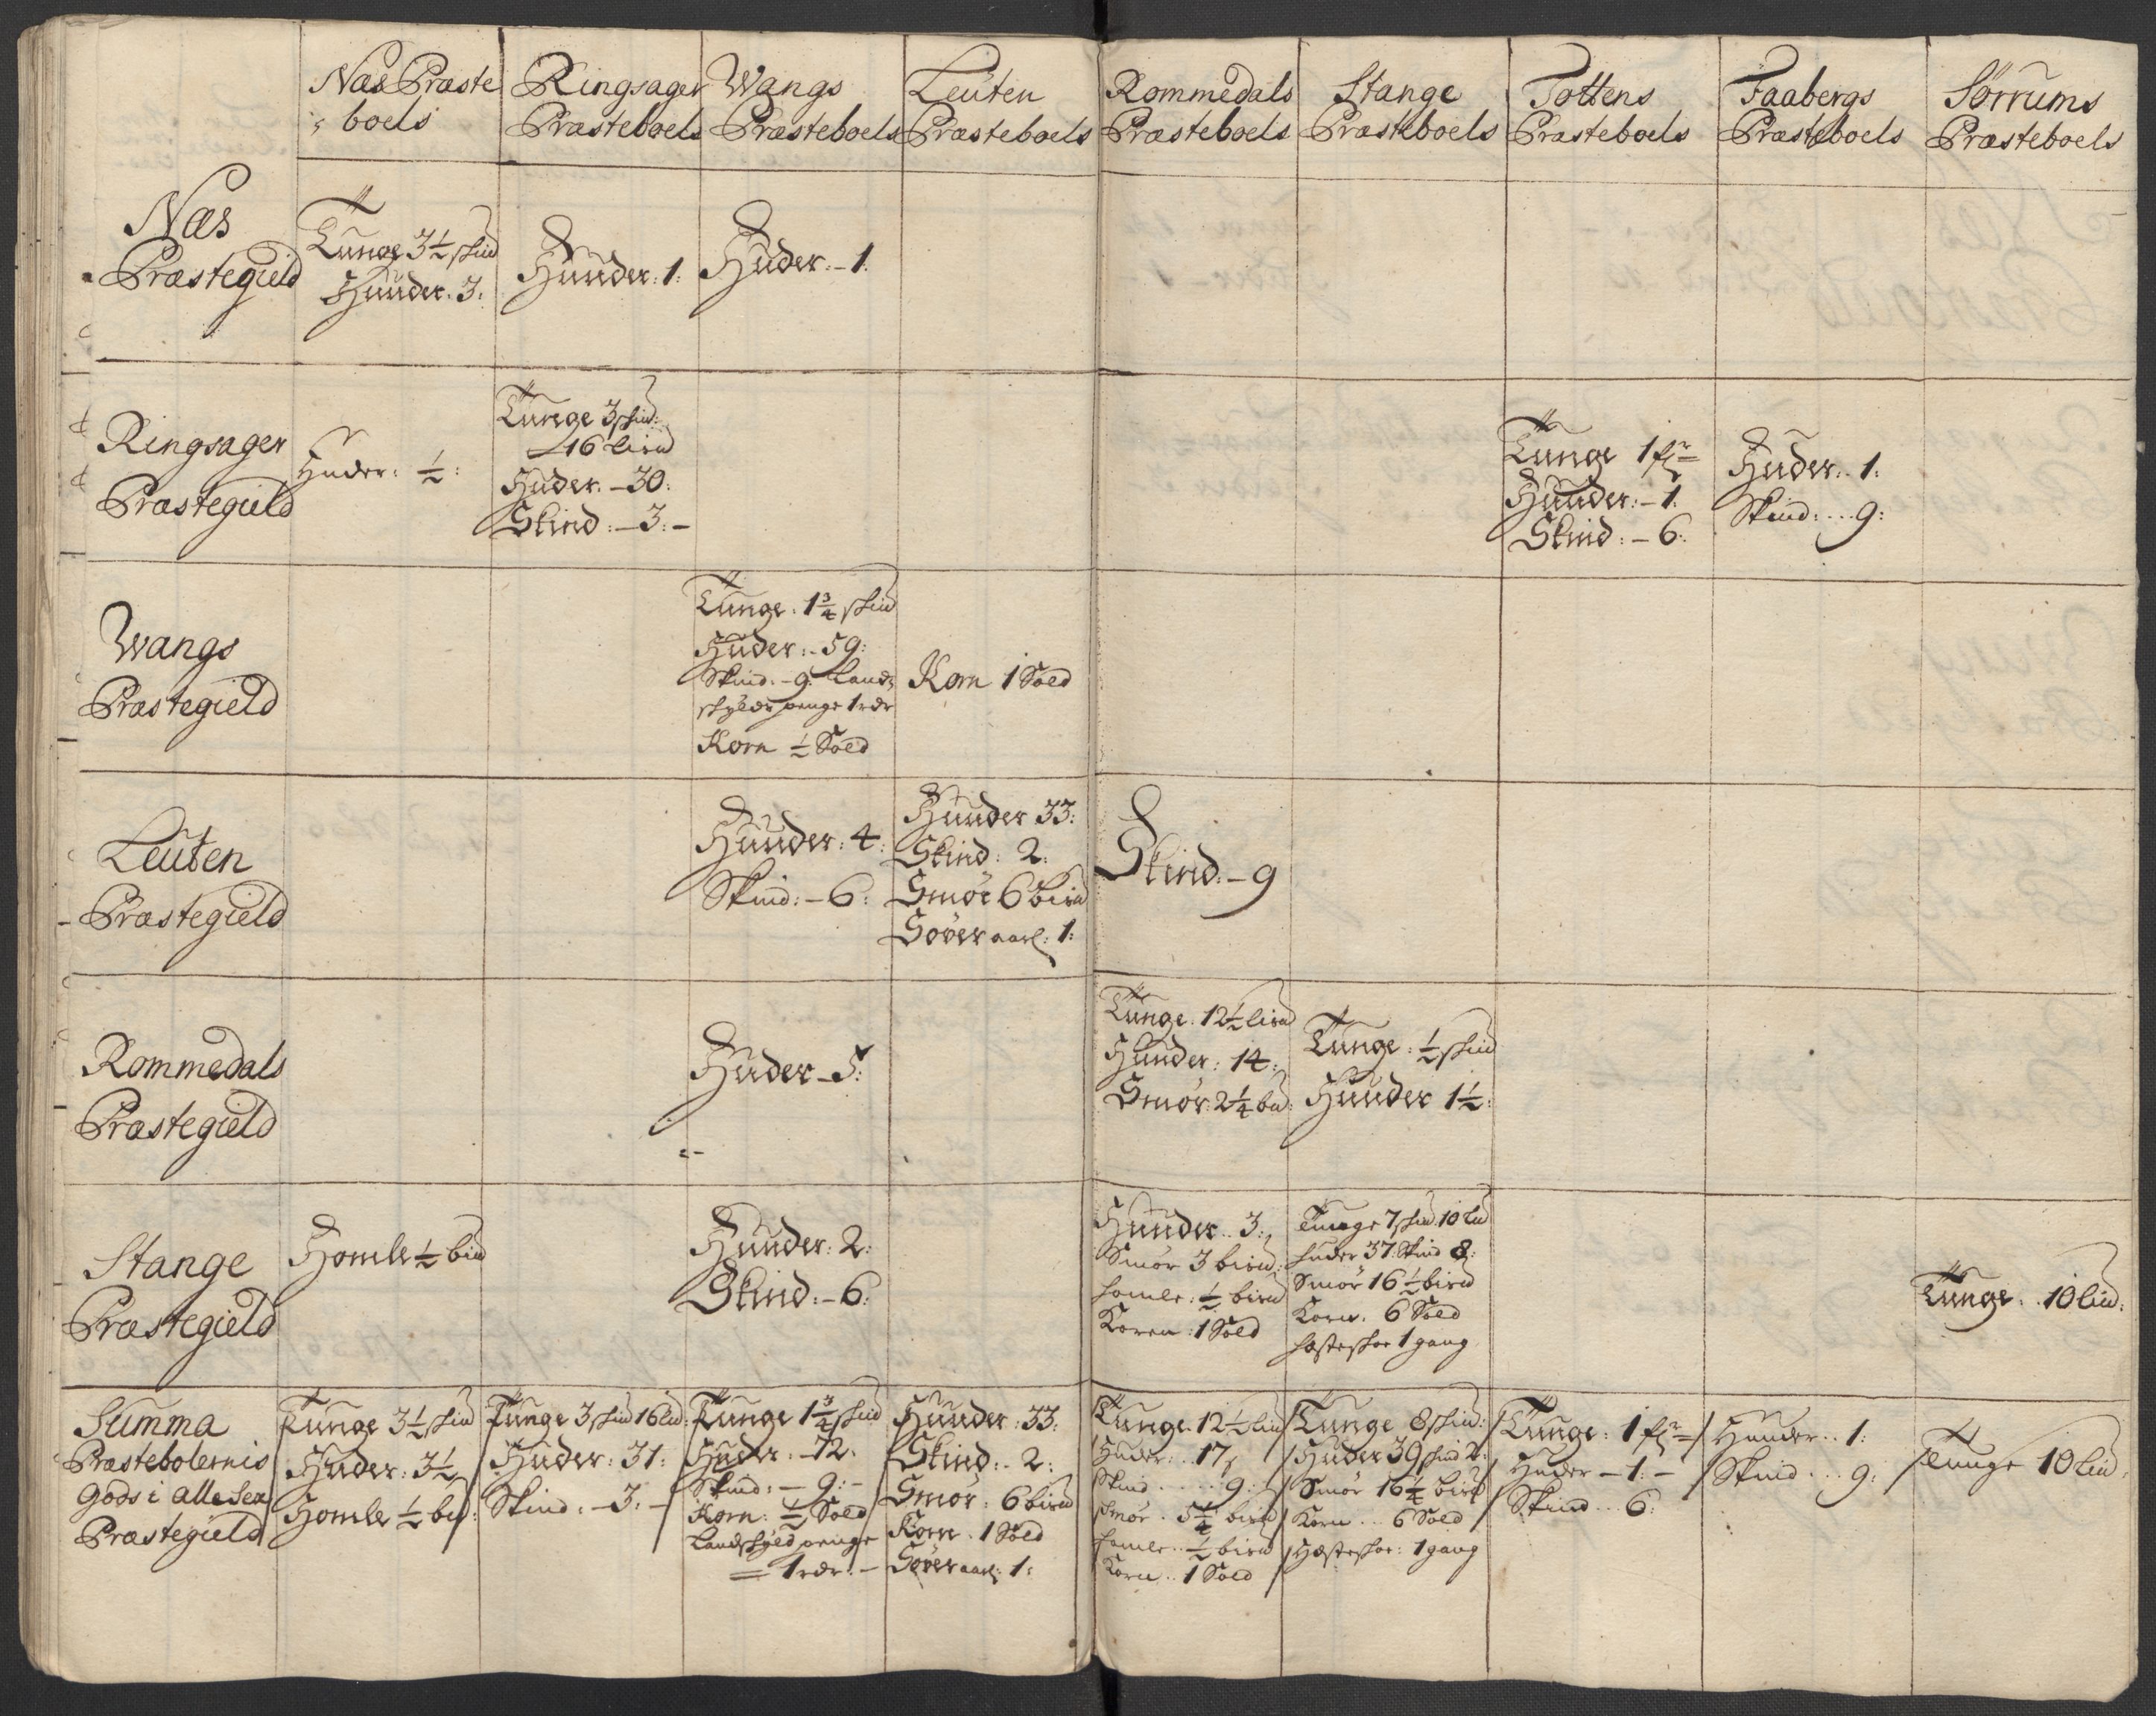 Næs Præste
boels
Ringsager
Præsteboels
Wangs
Præsteboels
Leuten
Præsteboels
Rommedals
Præsteboels
Stange
Præsteboels
Tottens
Præsteboels
Faabergs
Præsteboels
Sørrums
Præsteboels
Næs
Præstegield
Tunge 3½ skud
Huuder. 3:
Huuder: 1:
Huder. - 1:
Ringsager
Præstegield
Huder: ½:
Tunge 3 skud:
16 lisd
Huder. - 30:
Skind: - 3: -
Tunge 1 fr
Huuder: - 1.
Skind: - 6:
Huder. 1:
Skind: .. 9:
Wangs
Præstegield
Tunge. 1¾ skud
Huder: - 59:
Skind: - 9. Land
skylds penge 1 rdr
Korn ½ Sold
Korn 1 Sold
Leuten
Præstegield
Huuder: 4:
Skind: - 6:
Huuder 33:
Skind: 2:
Smør 6 bisd
Søver aarl: 1:
Skind: - 9
Rommedals
Præstegield
Huder - 5:
Tunge. 12½ lisd
Huuder: 14:
Smør: 2¼ bd:
Tunge: ½ skud
Huuder 1½:
Stange
Præstegield
Homle ½ bisd
Huuder: 2:
Skind: - 6:
Huuder. 3:
Smør 3 bisd:
homle: ½ bisd
Koren: 1 Sold
Tunge 7 skud. 10 lid
huder 37: Skind 8:
Smør 16½ bisd
Korn. 6 Sold
hæsteskoe 1 gang
Tunge. 10 lid:
Summa
Præstebolernis
Gods i alle Sex
Præstegield
Tunge 3½ skud
Huder: 3½
Homle ½ bd:
Tunge 3 skud 16 lid:
Huder: 31:
Skind: - 3: -
Tunge 1¾ skud
Huder: - 72:
Skind: - 9: -
Korn: ½ Sold
Landskyld penge
1 rdr. -
Huuder: 33:
Skind: - 2:
Smør: 6 bisd
Korn. 1 Sold
Søver aarl: 1:
Tunge. 12½ lid
Huder: 17
Skind .... 9:
Smør. 5¼ bisd
homle .. ½ bisd
Korn .. 1 Sold
Tunge 8 skud:
Huder 39 skind 2:
Smør 16¼ bisd
Korn .. 6 Sold
Hæstesko: 1 gang
Tunge: 1 fr
Huder - 1: -
Skind ... 6:
Huuder .. 1:
Skind ... 9:
Tunge 10 lid: